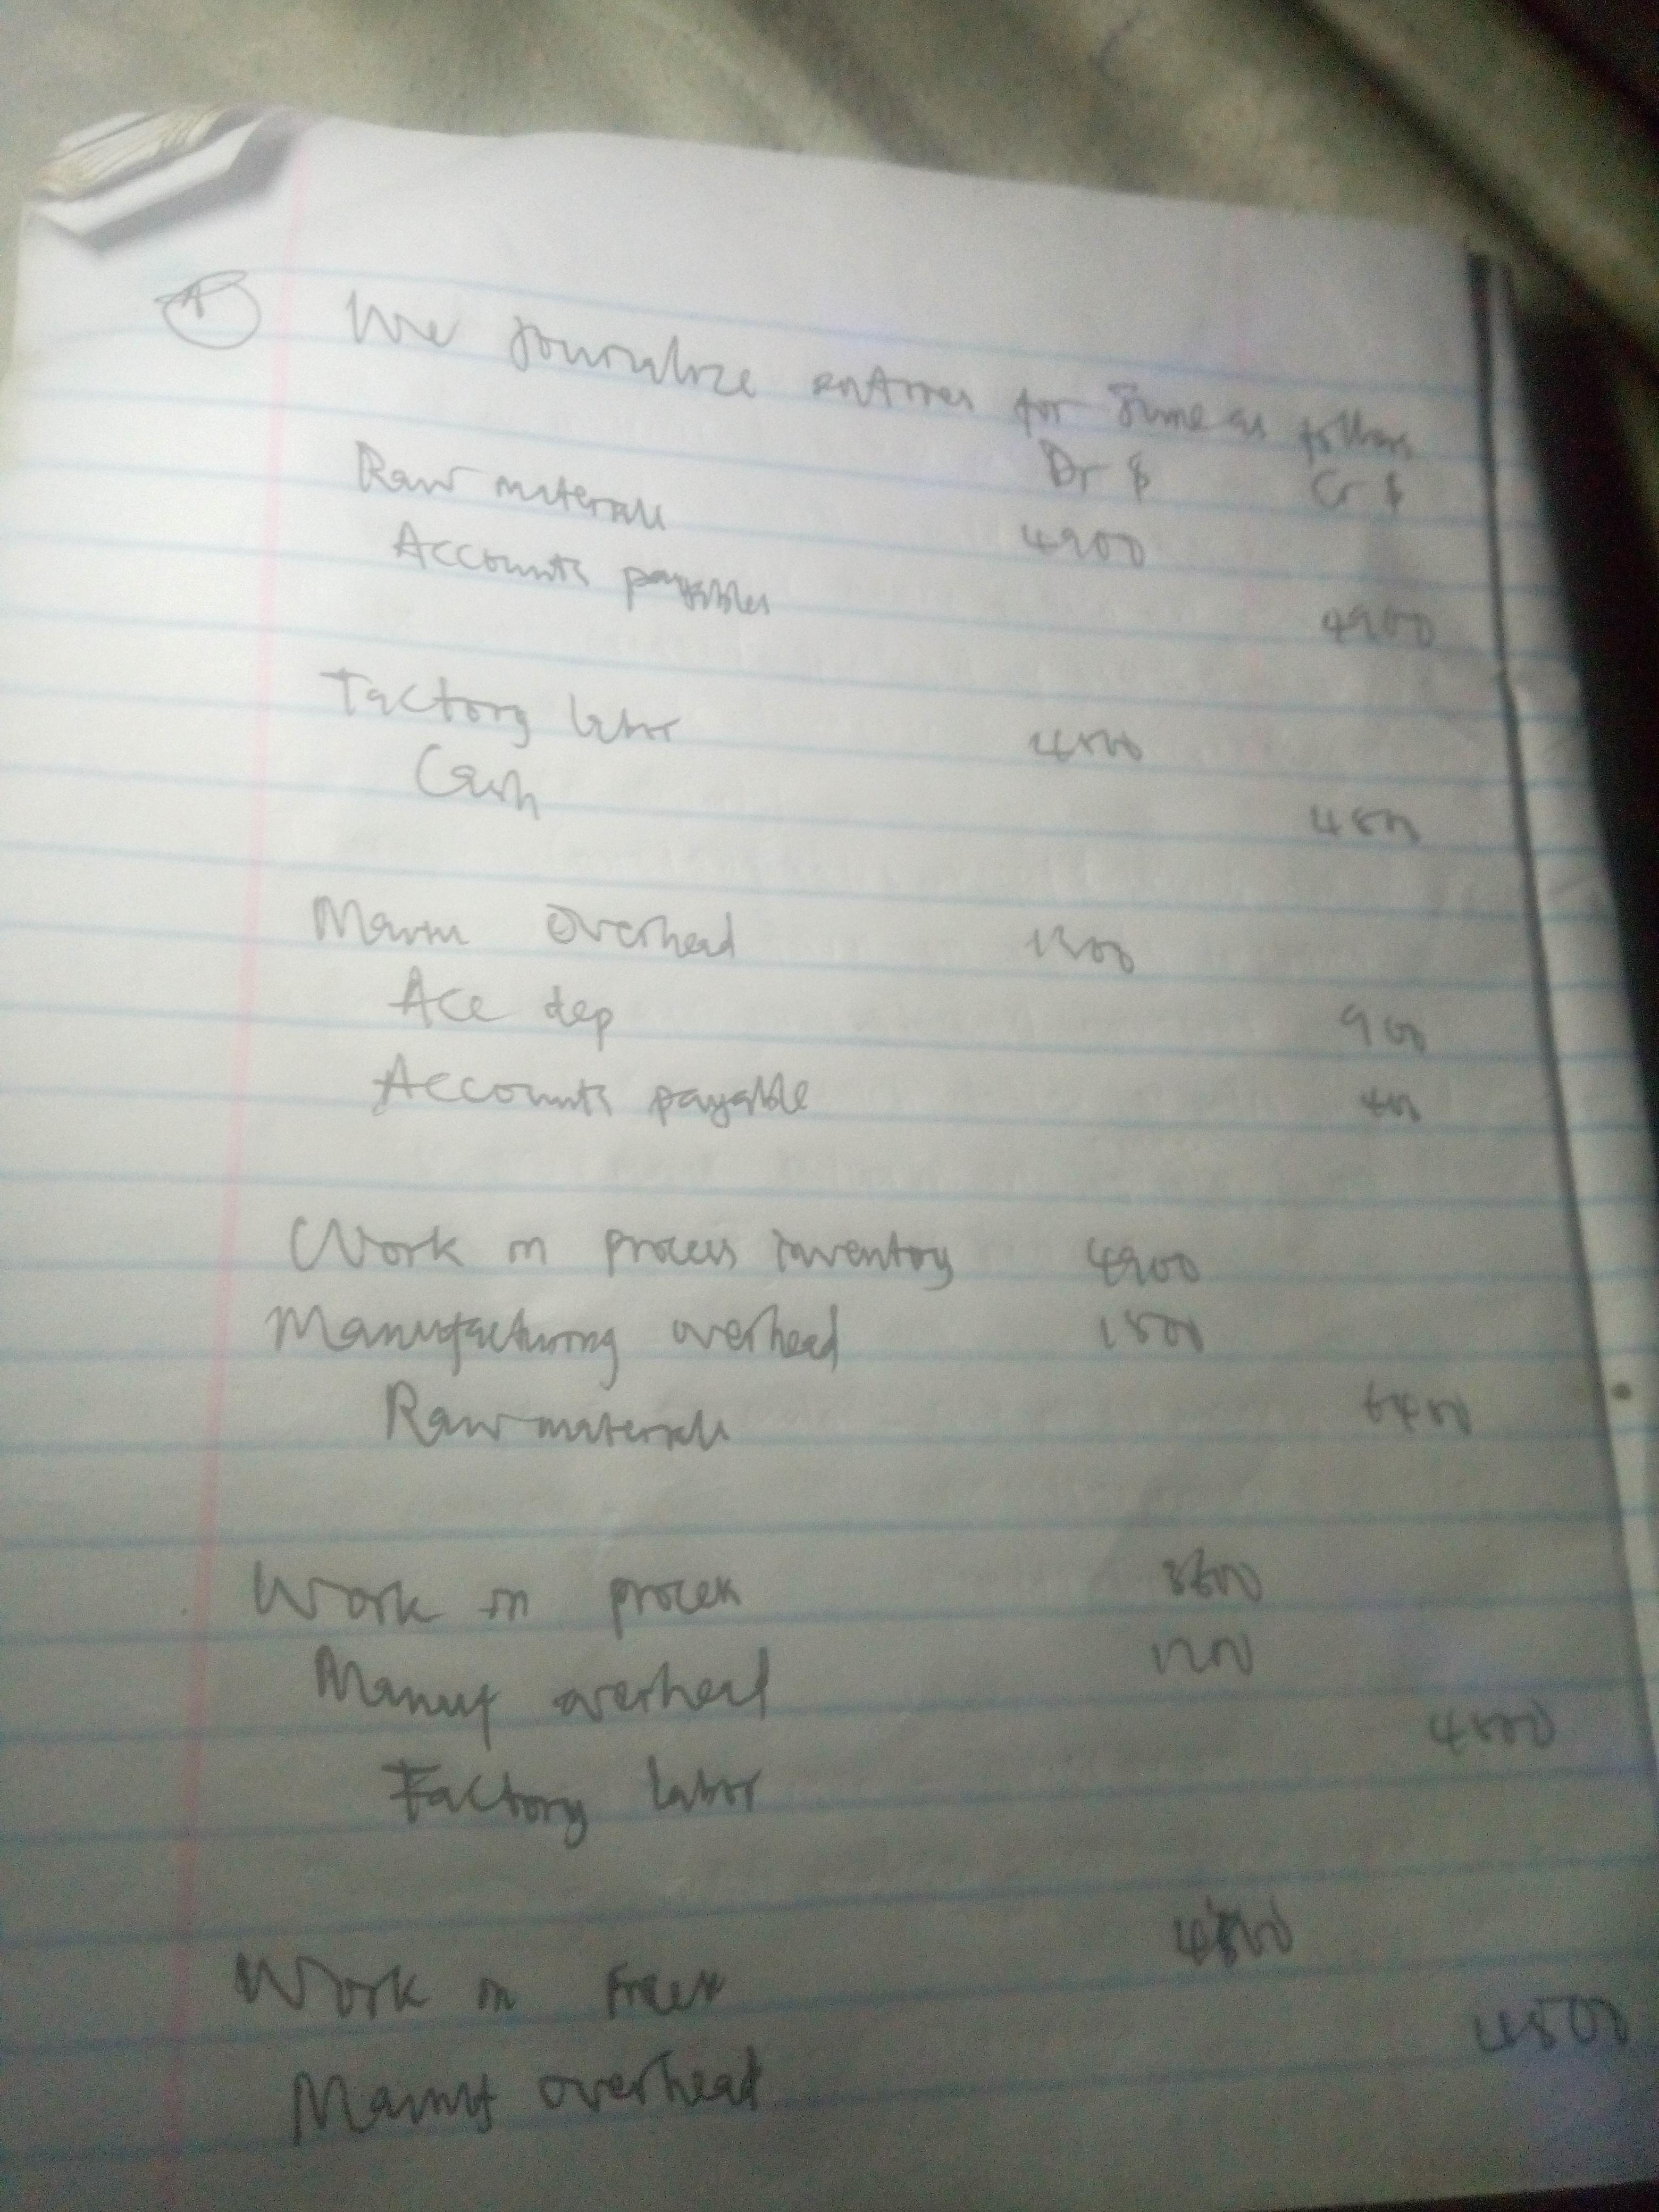 A We journalize entries for June as follows
Dr $ Cr $
Raw materials 4900
Accounts payables 4900
Factory labor 4800
Cash 4800
Manu overhead 1300
Acc dep 900
Accounts payable 400
Work in process inventory 4900
Manufacturing overhead 1500
Raw materials 6400
Work in process 3600
Manuf overhead 1200
Factory labor 4800
Work in process 4500
Manuf overhead 4500